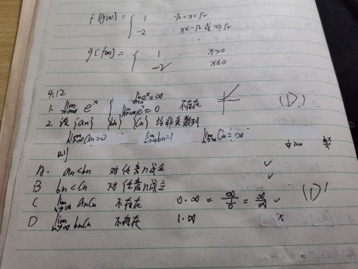 f[g(x)] = { 1 -√2<x<√2
-2 x≤-√2 或 x≥√2
g(f(x)) = { 1 x>0
-2 x≤0
4.12
1. lim e^x { lim e^x=∞ 不存在 (D.)
lim e^x=0
2. 设{an} {bn} {Cn} 均非负数列
lim an=0 lim bn=1 lim Cn=∞
A. an<bn 对任意n成立
B bn<Cn 对任意n成立
C lim anCn 不存在 0·∞ = (D)
D lim bnCn 不存在 1·∞